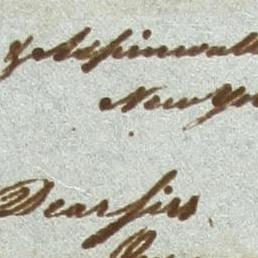 & Aspinwall
New Yor
Dear sirs